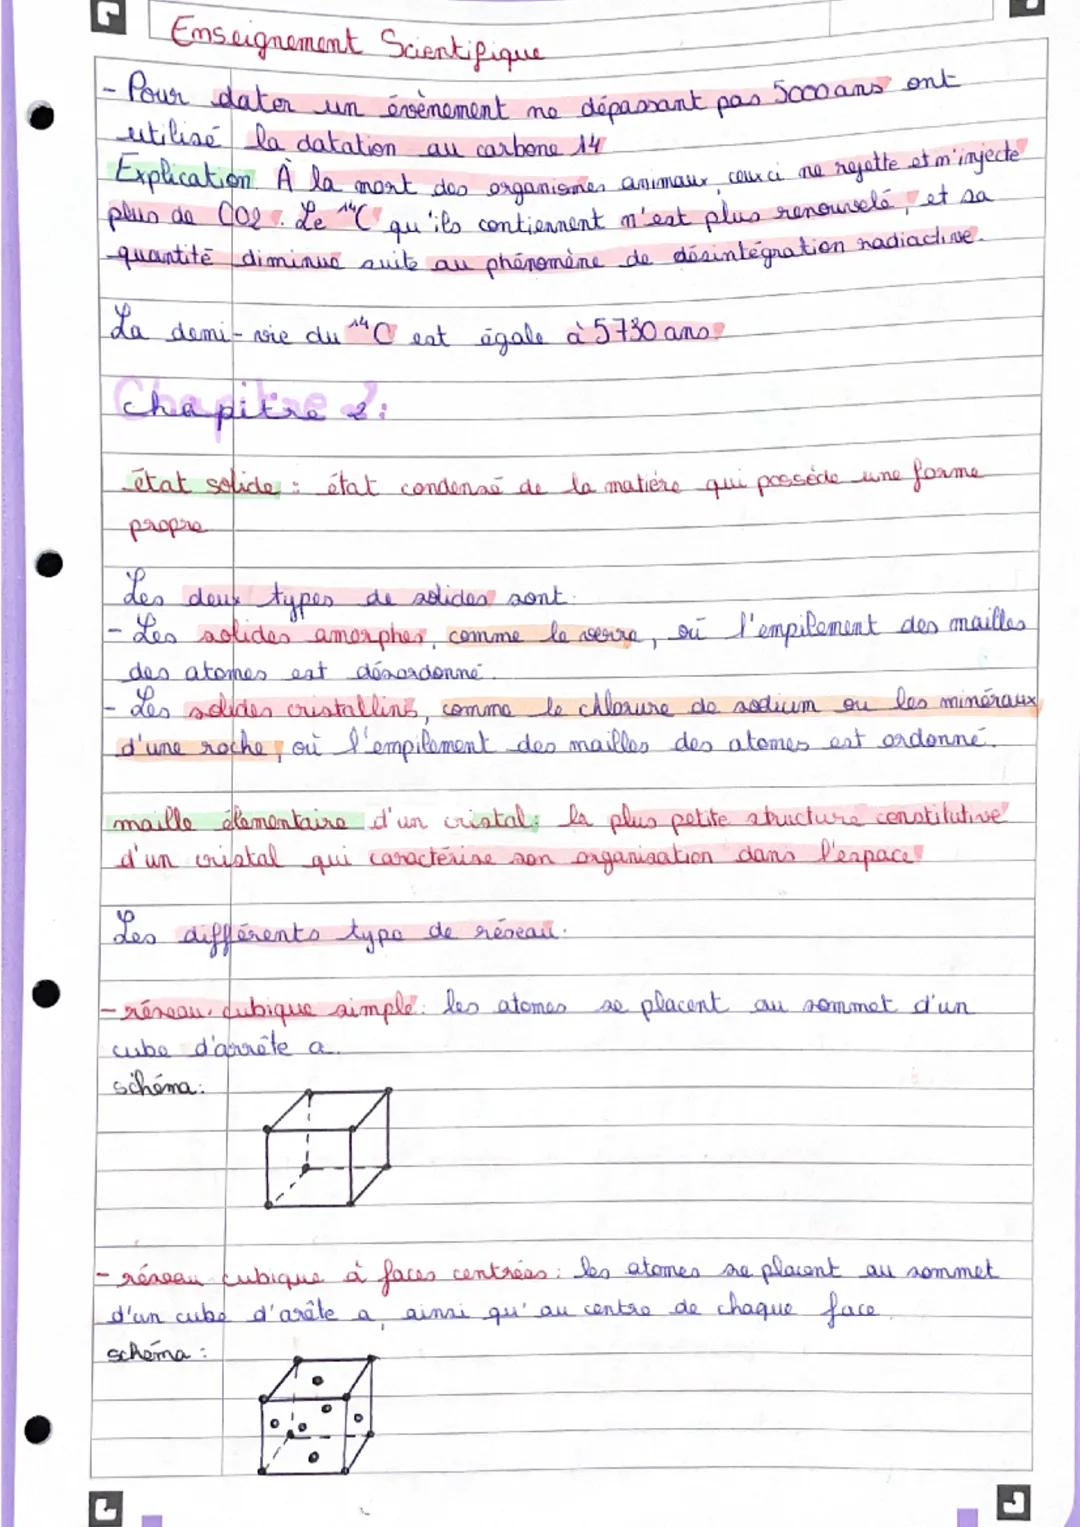 Enseignement Scientifique
- Pour dater un évènement ne dépassant pas 5000 ans ont
utilisé la datation au carbone 14
Explication. À la mort des organismes animaux, ceux ci ne rejette et m'injecte
plus de CO2. Le ¹⁴C qu'ils contiennent n'est plus renouvelé, et sa
quantité diminue suite au phénomène de désintégration radiactive.
La demi-vie du ¹⁴C est égale à 5730 ans.
Chapitre 2:
état solide : état condensé de la matière qui possède une forme
propre
Les deux types de solides sont:
- Les solides amorphes, comme le verre, où l'empilement des mailles
des atomes est désordonné.
- Les solides cristallins, comme le chlorure de sodium ou les minéraux
d'une roche, où l'empilement des mailles des atomes est ordonné.
maille élementaire d'un cristal: la plus petite structure constitutive
d'un cristal qui caractérise son organisation dans l'espace
Les différents type de réseau.
- réseau cubique simple: les atomes se placent au sommet d'un
cube d'arrête a.
schéma:
- réseau cubique à faces centrées: les atomes se placent au sommet
d'un cube d'arête a, ainsi qu'au centre de chaque face.
schéma :